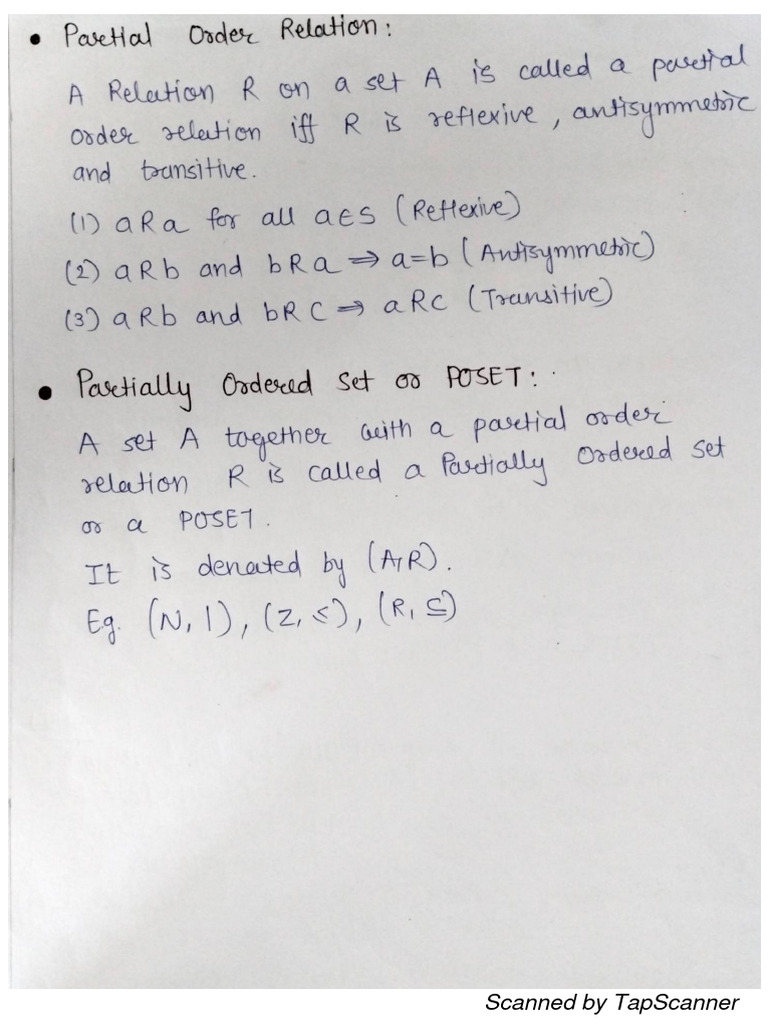 • Partial Order Relation:
A Relation R on a set A is called a partial
order relation iff R is reflexive, antisymmetric
and transitive.
(1) aRa for all a∈S (Reflexive)
(2) aRb and bRa ⇒ a=b (Antisymmetric)
(3) aRb and bRC ⇒ aRC (Transitive)
• Partially Ordered Set or POSET:
A set A together with a partial order
relation R is called a Partially Ordered Set
or a POSET.
It is denoted by (A, R).
Eg. (N, |), (Z, ≤), (R, ⊆)
Scanned by TapScanner